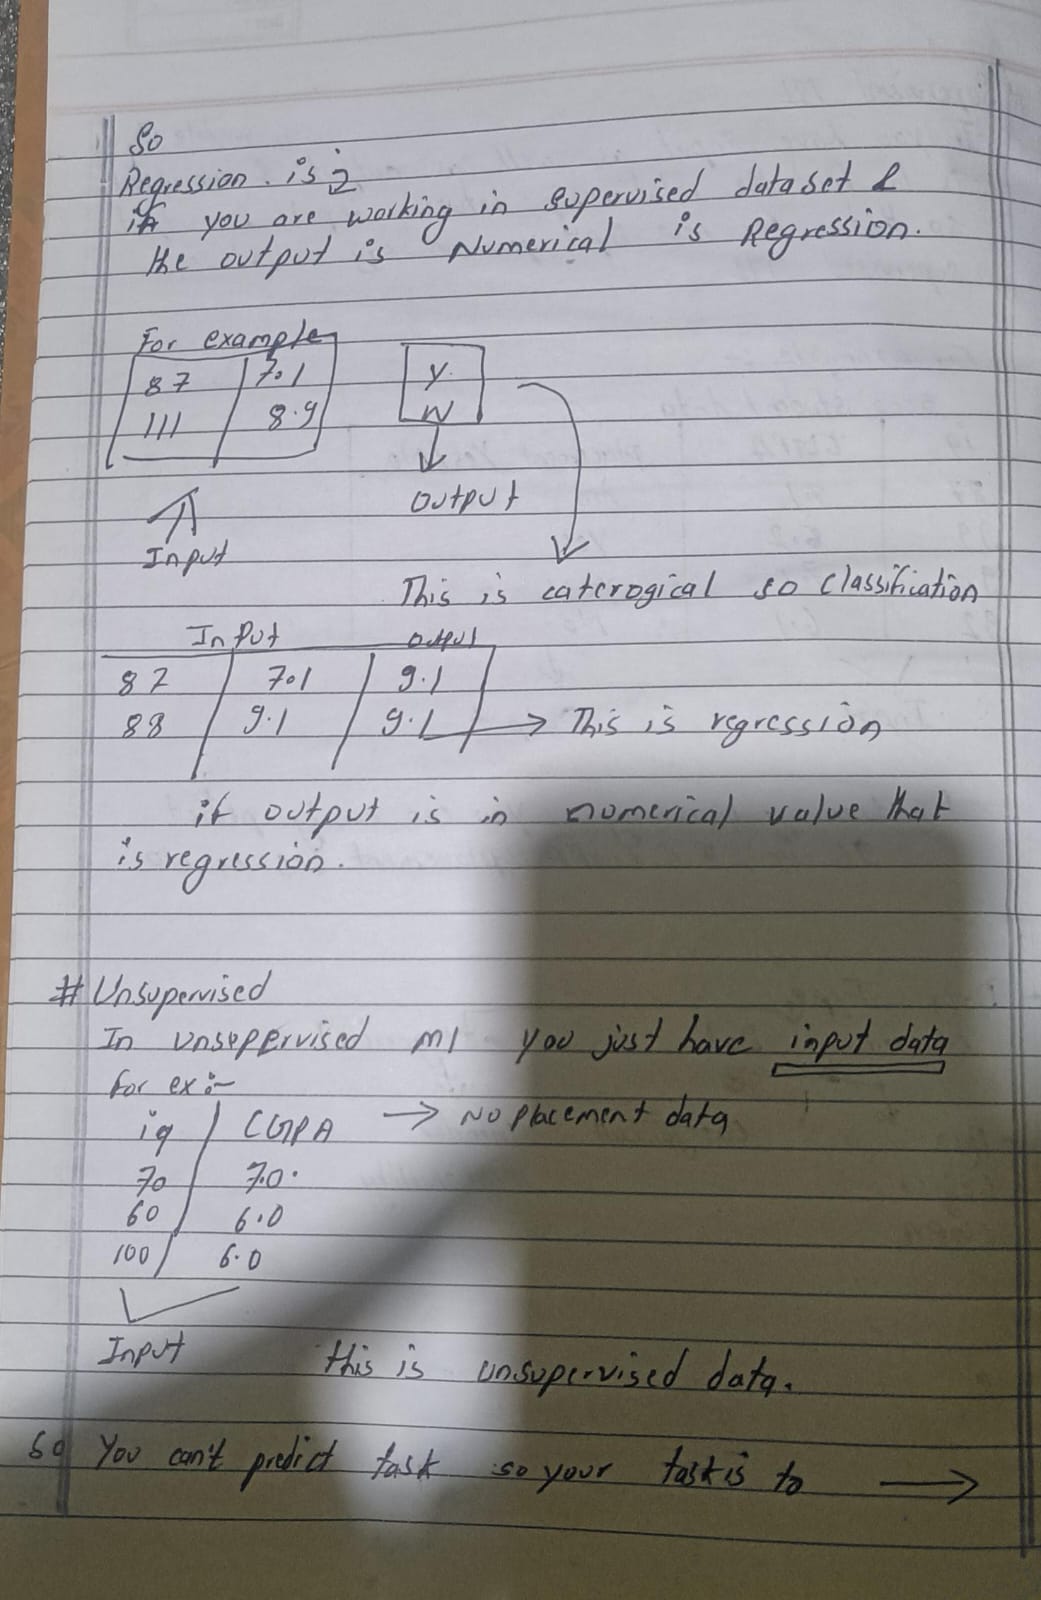 So
Regression is :
if you are working in supervised dataset &
the output is Numerical is Regression.
For example
87 7.1 Y
111 8.9 N
Output
Input
This is caterogical so classification
Input Output
87 7.1 9.1
88 9.1 9.1 → This is regression
if output is in numerical value that
is regression.
# Unsupervised
In unsupervised ml you just have input data
for ex :-
iq CGPA → No placement data
70 7.0
60 6.0
100 6.0
Input
this is unsupervised data.
so You can't predict task so your task is to →